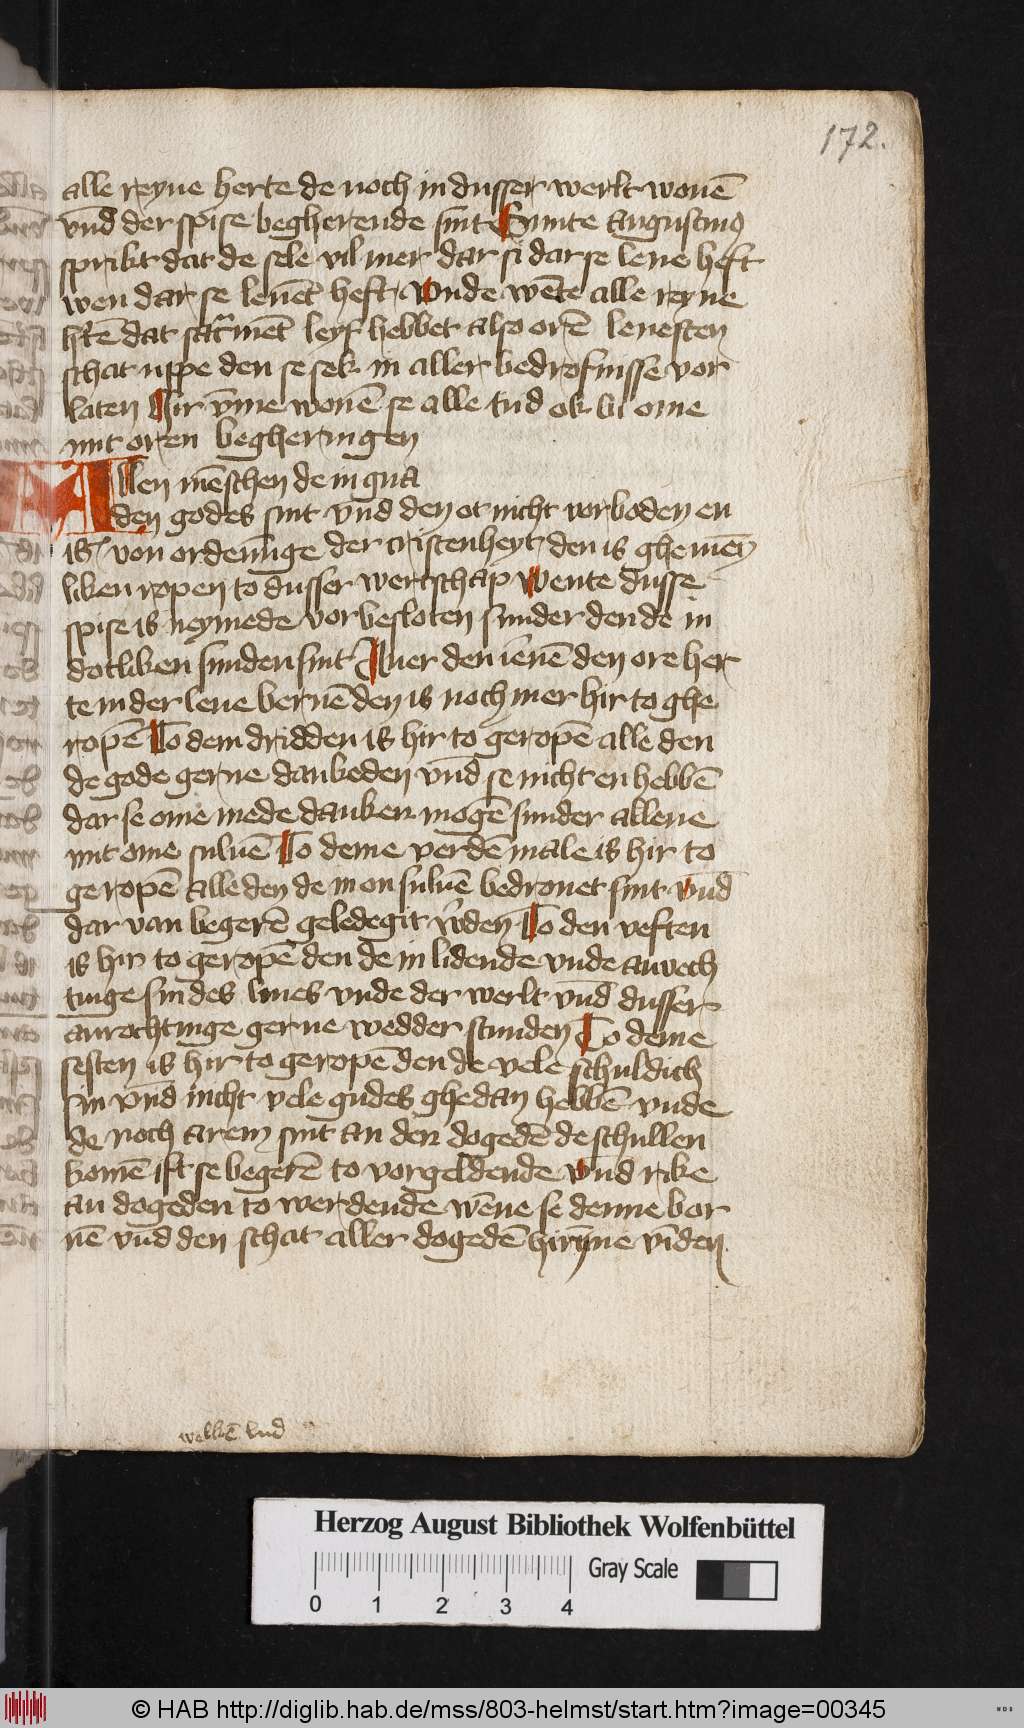 172.
alle reyne herte de noch in dusser werlt wonē
vn̄d der spise begherende sint Sunte Augustinꝰ
sprikt dat de sele vil mer dar si dar se leue heft
wen dar se leuēt heft Vnde wēte alle reyne
h̓tē dat sacͣmēt leyf hebbet also orē leuesten
schat uppe den se sek in aller bedrofnisse vor
laten Hir v̄me wonē se alle tud ok bi ome
mit oren begheringen
Allen mēschen de in gna
den godes sint vn̄d den ot nicht vorboden en
is von ordeninge der cristenheyt den is ghemey
liken ropen to dusser wertschap Wente dusse
spise is neymede vorbesloten sunder den de in
dotliken sunden sint Auer den iēnē den ore her
te in der leue bernē den is noch mer hir to ghe
ropē To dem dridden is hir to geropē alle den
de gode gerne dankeden vn̄d se nicht en hebbē
dar se ome mede danken mogē sunder allene
mit ome suluē To deme verdē male is hir to
geropē alle den de in on suluē bedrouet sint vn̄d
dar van begerē geledegit w̓den To den veften
is hir to geropē den de in lidende vnde anvech
tinge sin des liues vnde der werlt vn̄d dusser
anvechtinge gerne wedder stunden To deme
sesten is hir to geropē den de vele schuldich
sin vn̄d nicht vele gudes ghedan hebbē vnde
de noch arem sint an den dogedē de schullen
komē ift se begerē to vorgeldende vn̄d rike
an dogeden to werdende wēne se denne bor
nē vn̄d den schat aller dogedē hir ynne vīden
vn̄d
Herzog August Bibliothek Wolfenbüttel
Gray Scale
0 1 2 3 4
© HAB http://diglib.hab.de/mss/803-helmst/start.htm?image=00345